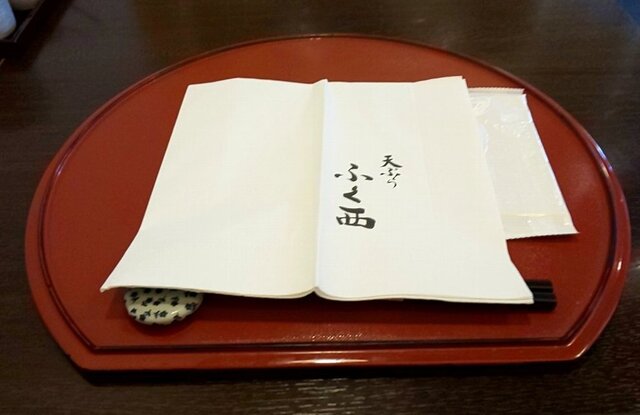 天ぷら
ふく西